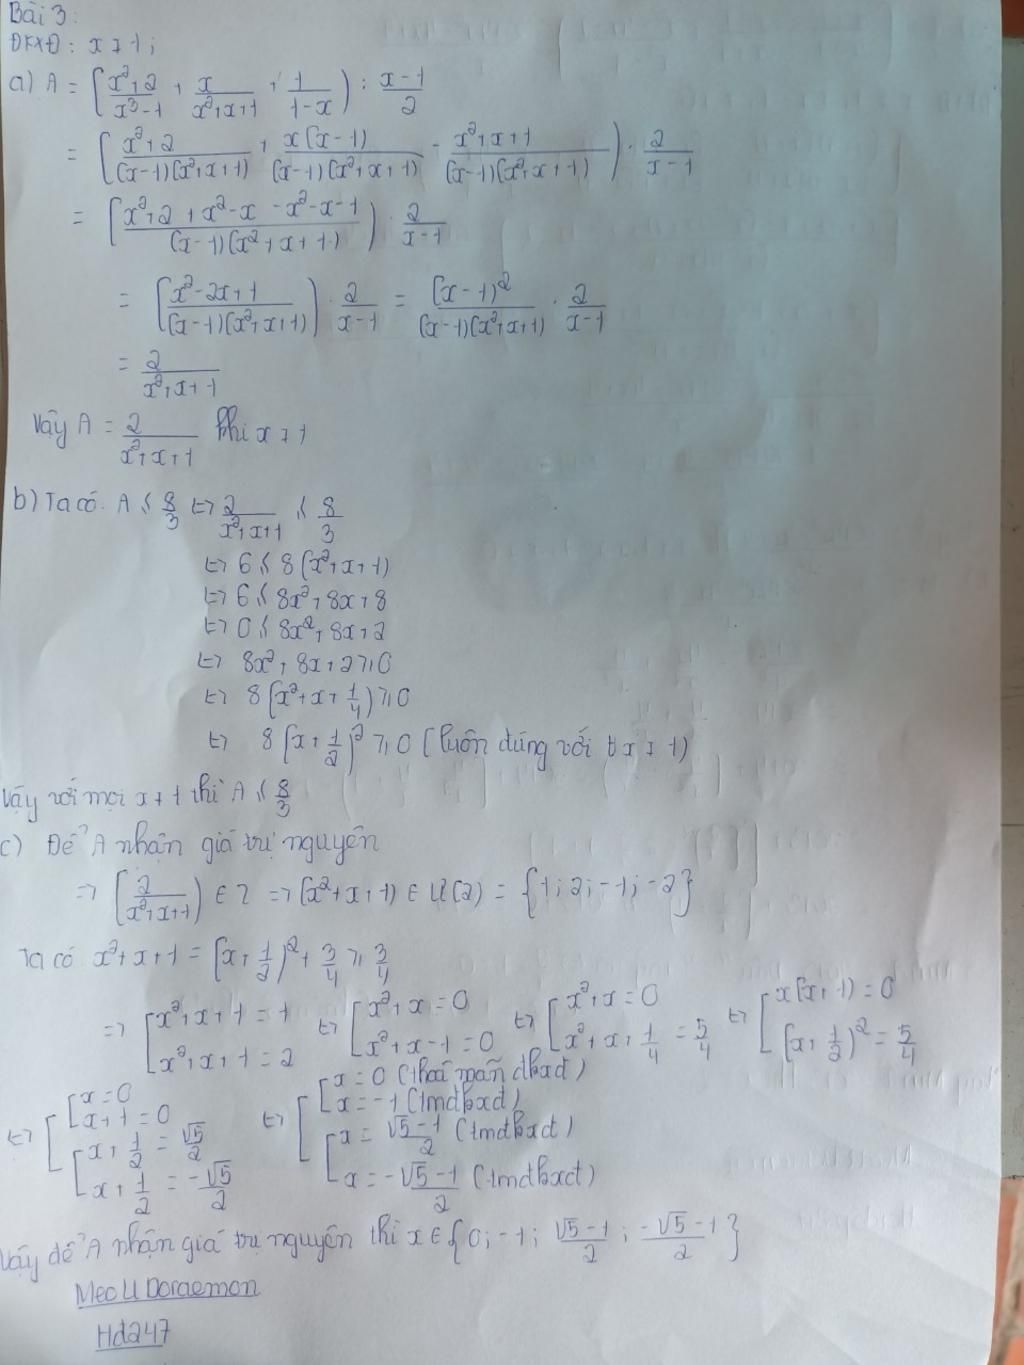 Bài 3:
ĐKXĐ: x ≠ 1;
a) A = (x²+2/x³-1 + x/x²+x+1 + 1/1-x) : x-1/2
= (x²+2/(x-1)(x²+x+1) + x(x-1)/(x-1)(x²+x+1) - x²+x+1/(x-1)(x²+x+1)) . 2/x-1
= (x²+2+x²-x-x²-x-1/(x-1)(x²+x+1)) . 2/x-1
= (x²-2x+1/(x-1)(x²+x+1)) . 2/x-1 = (x-1)²/(x-1)(x²+x+1) . 2/x-1
= 2/x²+x+1
Vậy A = 2/x²+x+1 khi x ≠ 1
b) Ta có. A ≤ 8/3 <=> 2/x²+x+1 ≤ 8/3
<=> 6 ≤ 8(x²+x+1)
<=> 6 ≤ 8x²+8x+8
<=> 0 ≤ 8x²+8x+2
<=> 8x²+8x+2 ≥ 0
<=> 8(x²+x+1/4) ≥ 0
<=> 8(x+1/2)² ≥ 0 (luôn đúng với ∀x ≠ 1)
Vậy với mọi x ≠ 1 thì A ≤ 8/3
c) Để A nhận giá trị nguyên
=> (2/x²+x+1) ∈ Z => (x²+x+1) ∈ Ư(2) = {1; 2; -1; -2}
Ta có x²+x+1 = (x+1/2)² + 3/4 ≥ 3/4
=> [x²+x+1 = 1 <=> [x²+x = 0 <=> [x²+x = 0 <=> [x(x+1) = 0
x²+x+1 = 2 x²+x-1 = 0 x²+x+1/4 = 5/4 (x+1/2)² = 5/4
<=> [x = 0 <=> [x = 0 (thoả mãn đkxđ)
x+1 = 0 x = -1 (tmđkxđ)
x+1/2 = √5/2 x = √5-1/2 (tmđkxđ)
x+1/2 = -√5/2 x = -√5-1/2 (tmđkxđ)
Vậy để A nhận giá trị nguyên thì x ∈ {0; -1; √5-1/2; -√5-1/2}
MecU Doraemon
Hd247